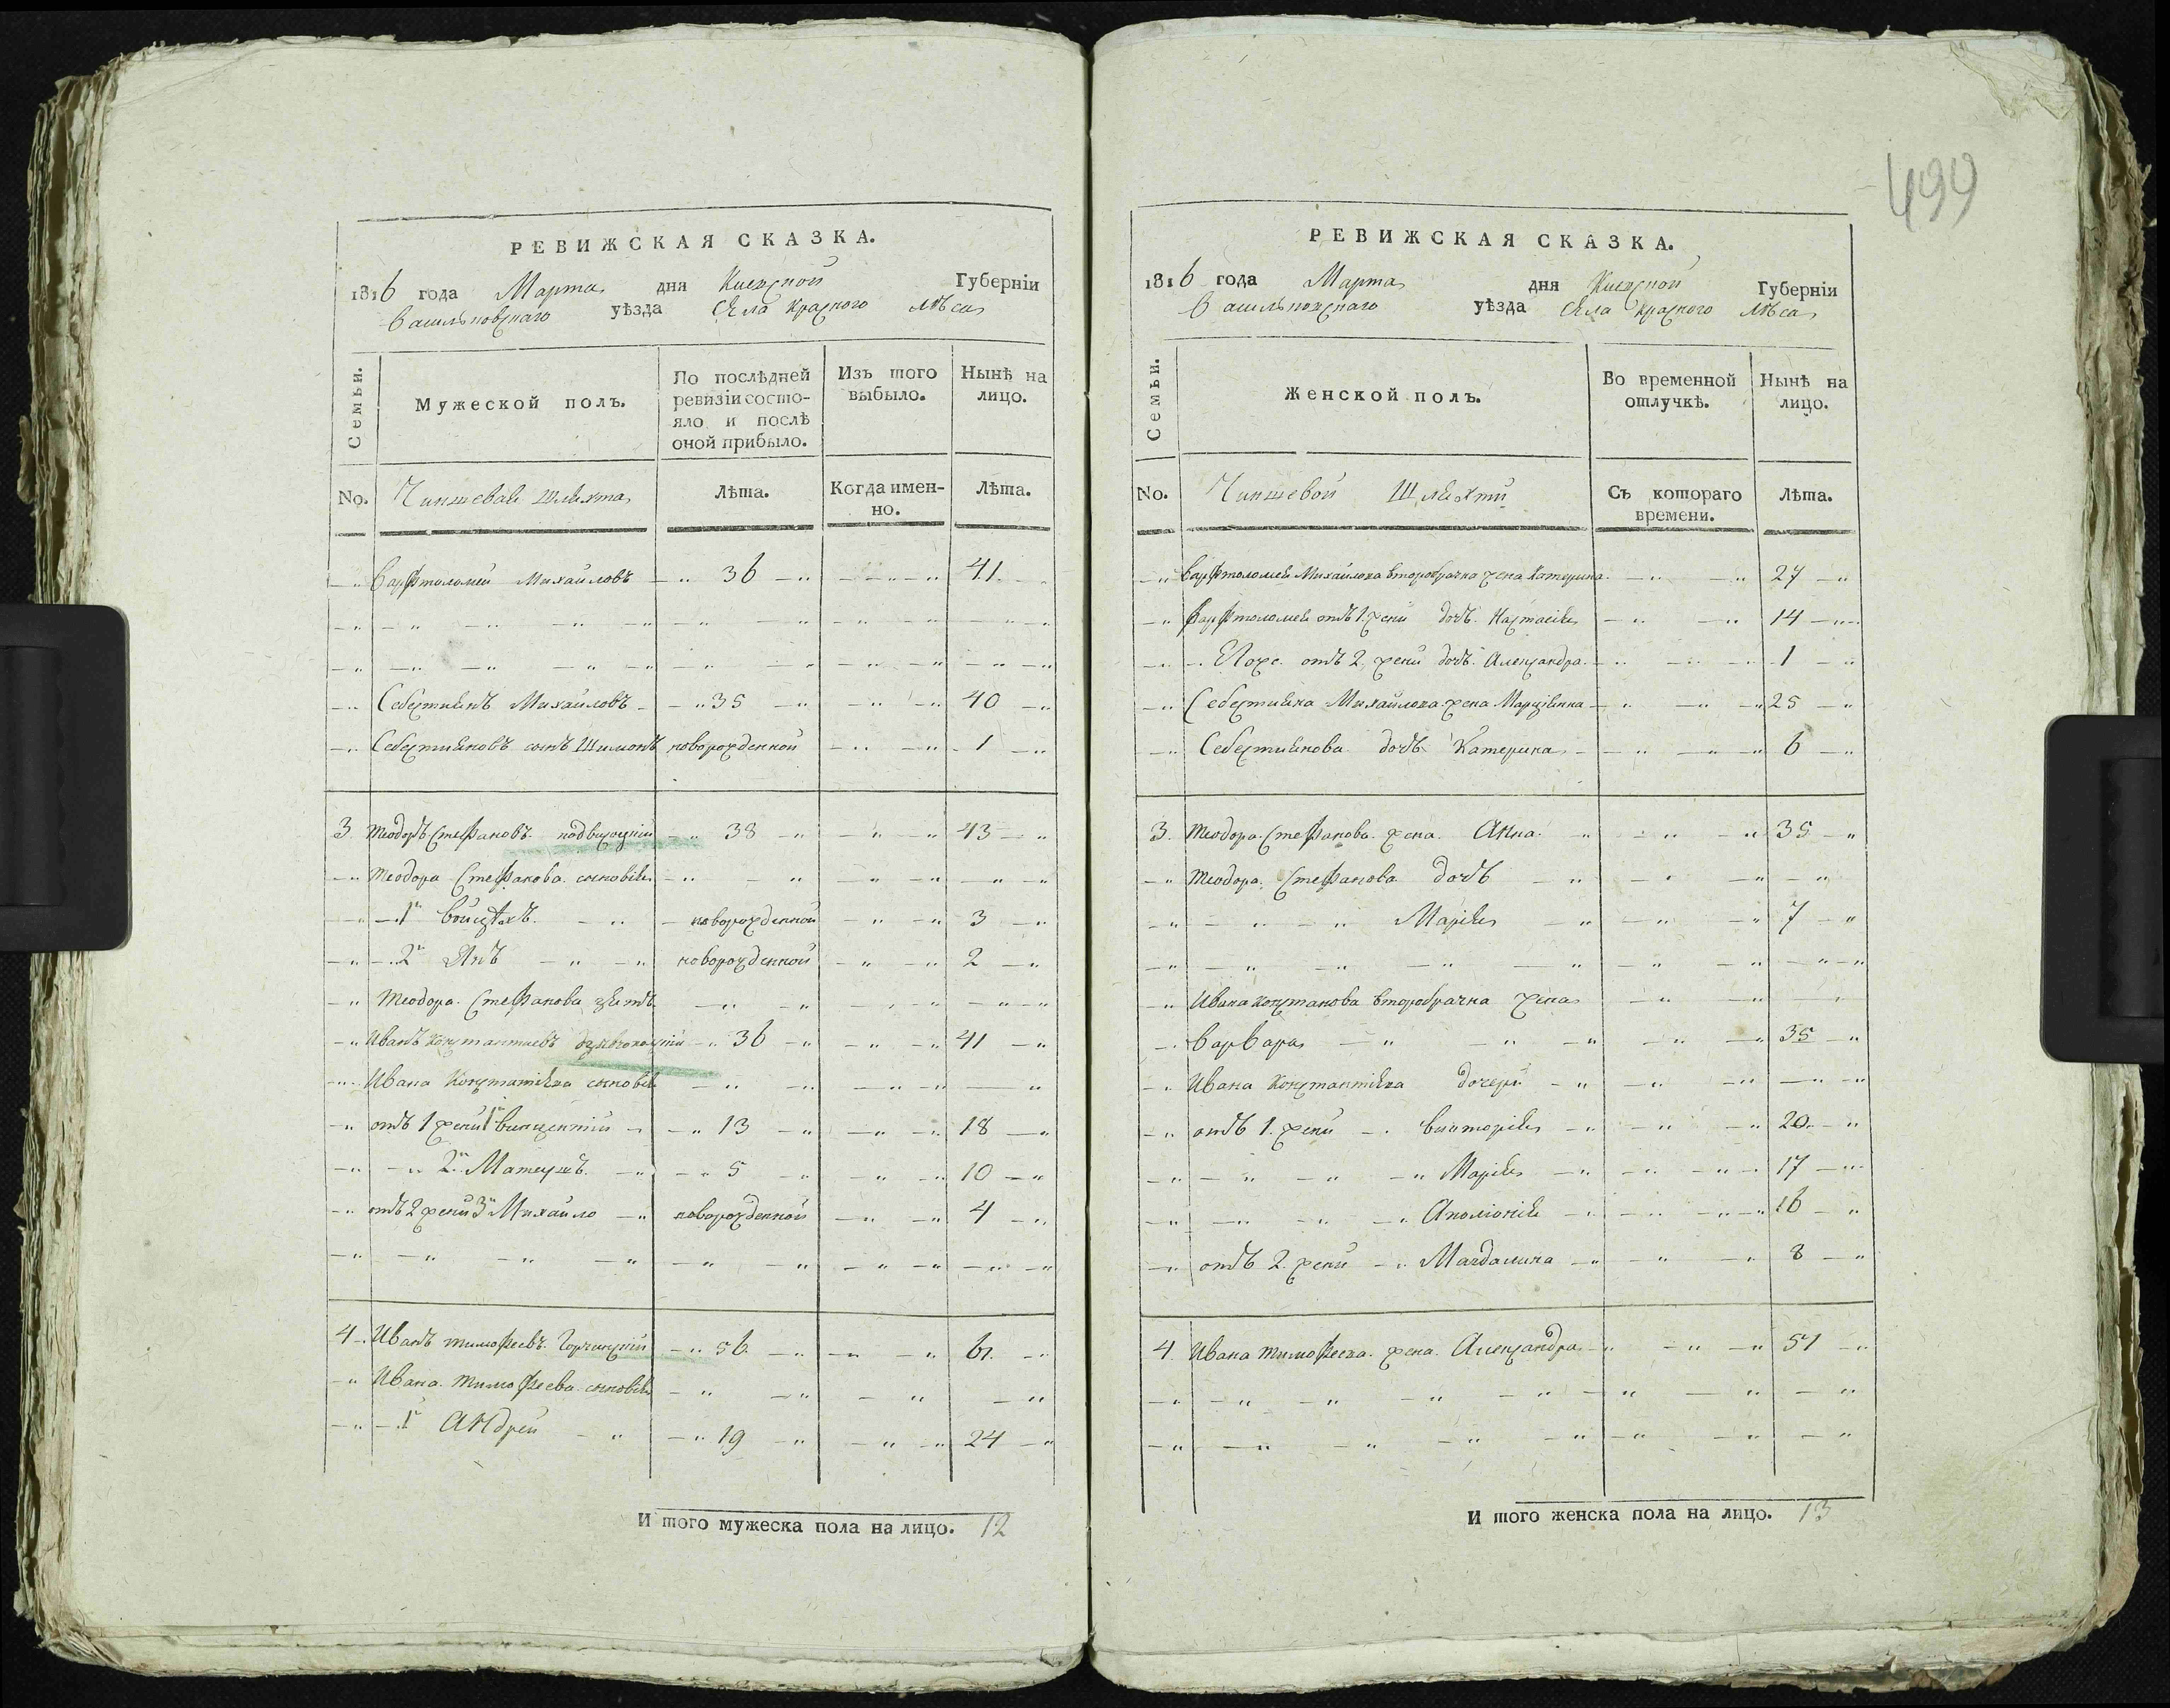 РЕВИЖСКАЯ СКАЗКА.
1816 года Марта дня Киевской Губерніи
Васильковскаго уѣзда Села Красного Лѣса
Семьи.
Мужеской полъ.
По послѣдней ревизіи состояло и послѣ оной прибыло.
Изъ того выбыло.
Нынѣ на лицо.
No. Чиншевая шляхта Лѣта. Когда именно. Лѣта.
Варфтоломей Михайловъ 36 41
Себестиянъ Михайловъ 35 40
Себестияновъ сынъ Шимонъ новорожденной 1
3 Теодоръ Стефановъ 38 43
Теодора Стефанова сыновья
1й Войцехъ новорожденной 3
2й Янъ новорожденной 2
Теодора Стефанова зять
Иванъ 36 41
Ивана сыновья
отъ 1 жени 1й Винцентій 13 18
2й Матеушъ 5 10
отъ 2 жени 3й Михайло новорожденной 4
4 Иванъ Тимофеевъ 56 61
Ивана Тимофеева сыновья
1й Андрей 19 24
И того мужеска пола на лицо. 12
499
РЕВИЖСКАЯ СКАЗКА.
1816 года Марта дня Киевской Губерніи
Васильковскаго уѣзда Села Красного Лѣса
Семьи.
Женской полъ.
Во временной отлучкѣ.
Нынѣ на лицо.
No. Чиншевой Шляхти Съ котораго времени. Лѣта.
Варфтоломея Михайлова второбрачна жена Катерина 27
Варфтоломея отъ 1. жени дочь Настасія 14
Егоже отъ 2. жени дочь Александра 1
Себестияна Михайлова жена Марціянна 25
Себестиянова дочь Катерина 6
3. Теодора Стефанова жена Анна 35
Теодора Стефанова дочь
Марія 7
Ивана второбрачна жена
Варвара 35
Ивана дочери
отъ 1. жени Викторія 20
Марія 17
Аполіонія 16
отъ 2. жени Магдалина 8
4. Ивана Тимофеева жена Александра 51
И того женска пола на лицо. 13